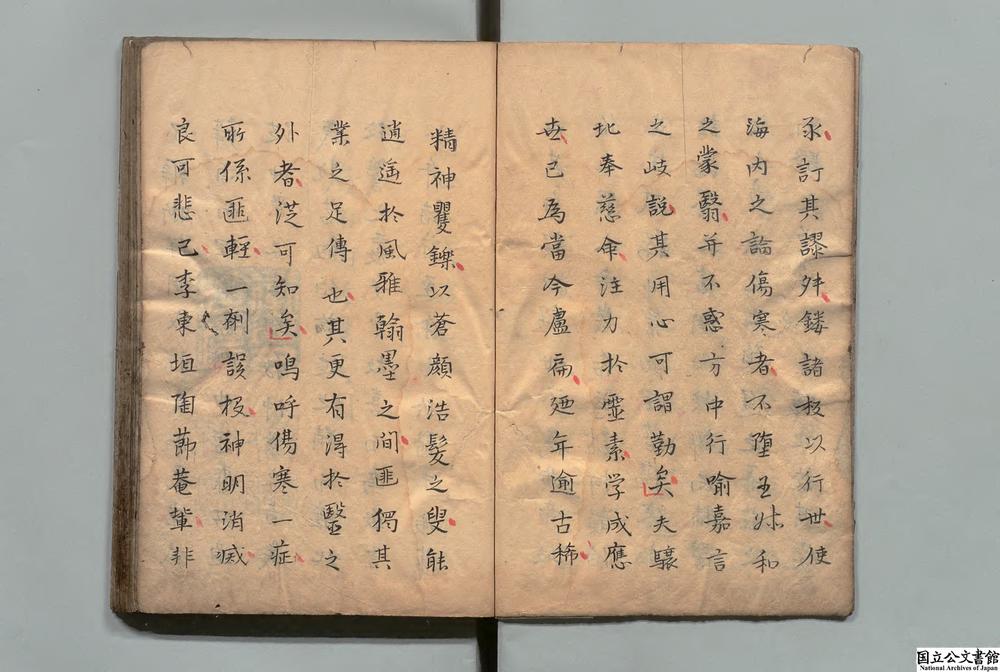 永訂其謬舛鏤諸板以行世使
海内之論傷寒者不墮王叔和
之蒙翳并不惑方中行喻嘉言
之岐說其用心可謂勤矣夫驤
北奉慈命注力於靈素学成應
世已為當今盧扁廼年逾古稀
精神矍鑠以蒼顔浩髮之叟能
逍遥於風雅翰墨之間匪獨其
業之足傳也其更有淂於醫之
外者從可知矣嗚呼傷寒一症
所係匪輕一劑誤投神明消滅
良可悲已李東垣陶節菴輩非
国立公文書館
National Archives of Japan